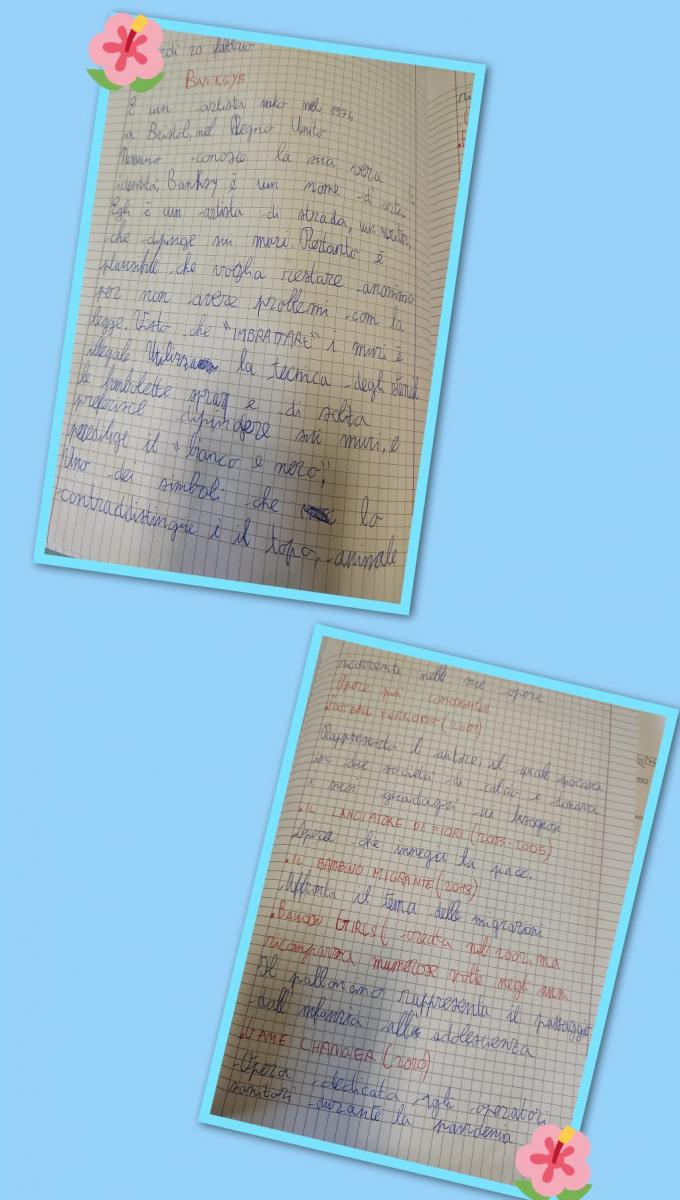 edi 20 febbraio
BANKSY
È un artista nato nel 1974
a Bristol, nel Regno Unito
Nessuno conosce la sua vera
identità, Banksy è un nome d'arte.
Egli è un artista di strada, un writer,
che dipinge sui muri. Pertanto è
plausibile che voglia restare anonimo
per non avere problemi con la
legge. Visto che "IMBRATTARE" i muri è
illegale Utilizza la tecnica degli stencil
le bombolette spray e di solito
preferisce dipingere sui muri, e
predilige il "bianco e nero",
Uno dei simboli che lo
contraddistingue è il topo, animale
ricorrente nelle sue opere
Opere più conosciute
FOOTBALL TERRORIST (2001)
Rappresenta l'autore, il quale giocava
in due società di calcio e donava
i suoi guadagni ai bisognosi
• IL LANCIATORE DI FIORI (2003-2005)
Opera che innegia la pace.
• IL BAMBINO MIGRANTE (2018)
Affronta il tema delle migrazioni
• BALOON GIRLS ( creata nel 2002, ma
ricomparsa numerose volte negli anni
Il palloncino rappresenta il passaggio
dall'infanzia all' adolescienza
• GAME CHANGER (2020)
Opera dedicata agli operatori
sanitari durante la pandemia